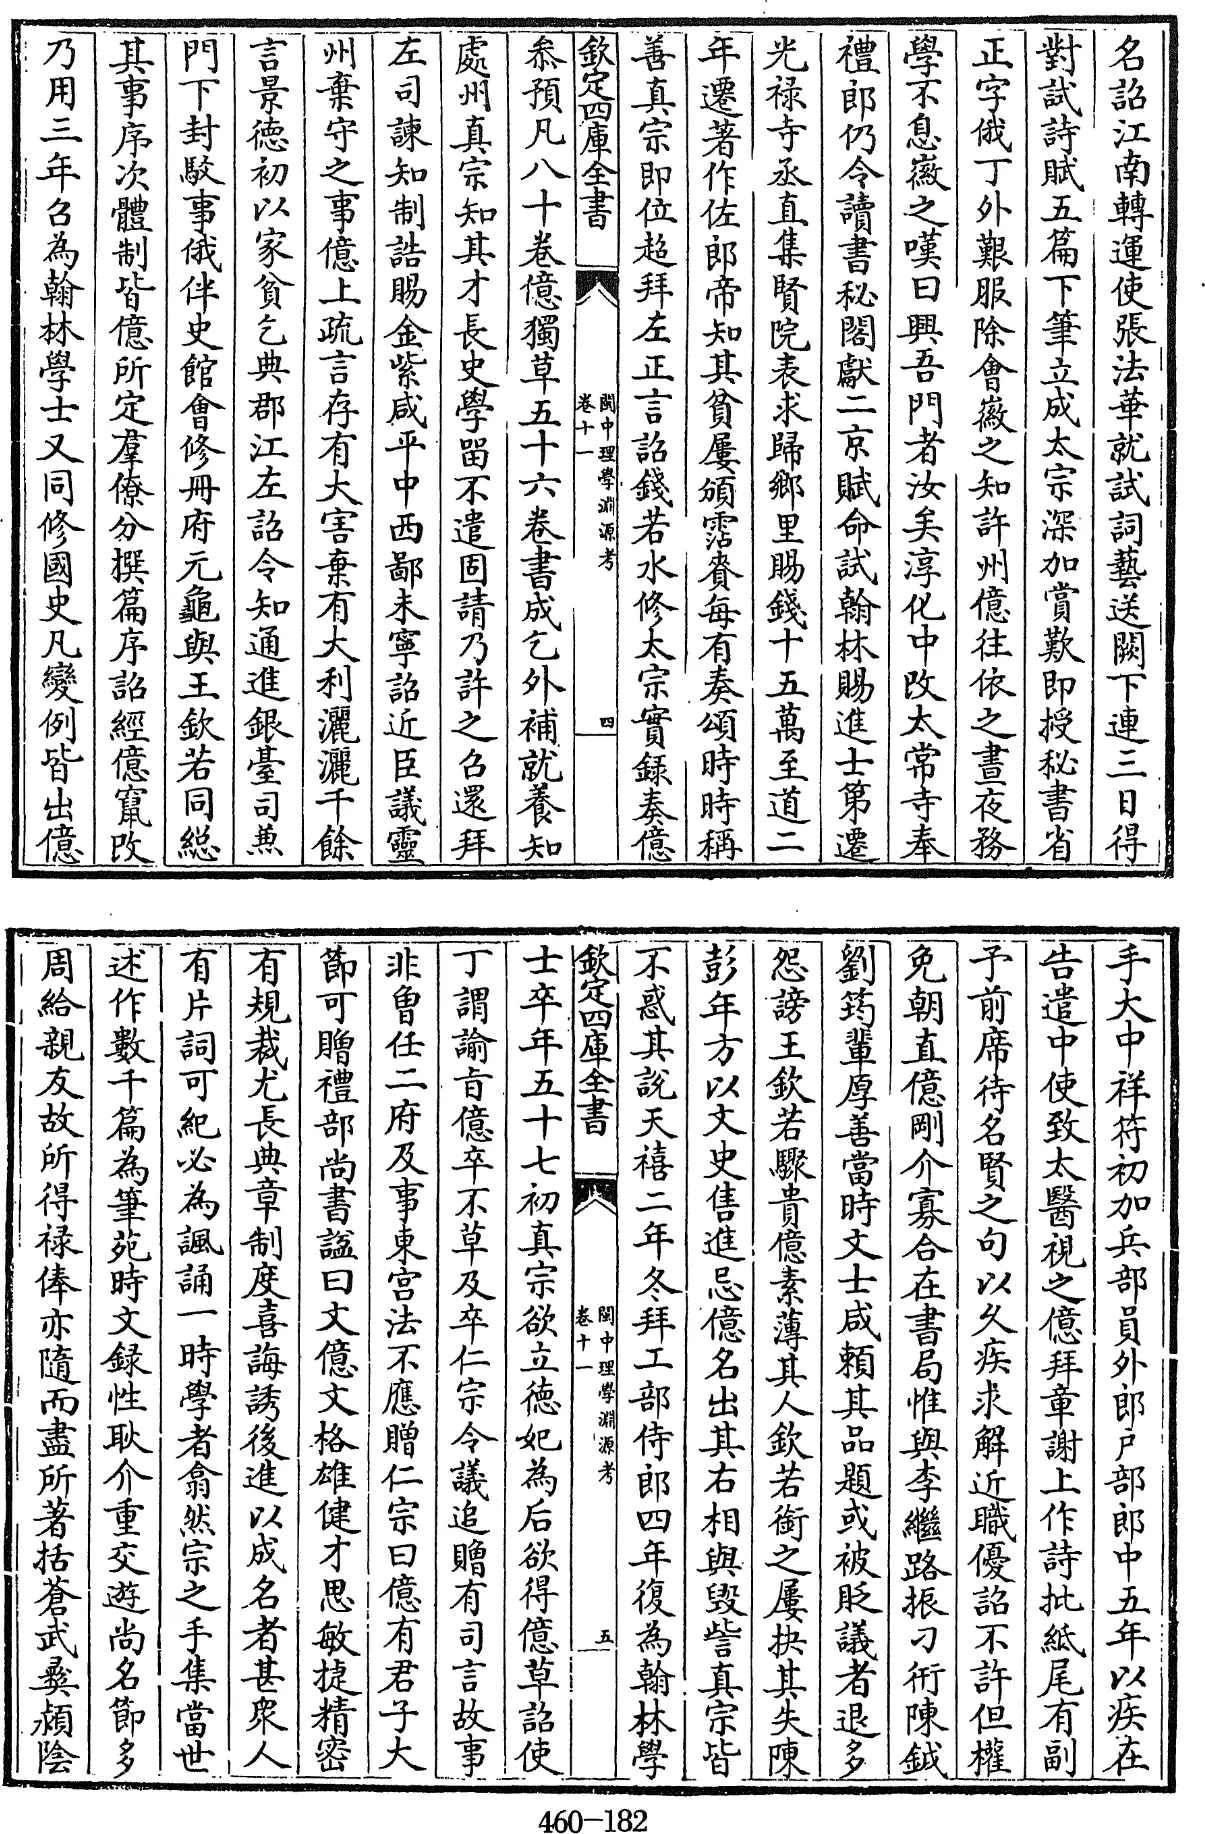 名詔江南轉運使張法華就試詞藝送闕下連三日得
對試詩賦五篇下筆立成太宗深加賞歎即授秘書省
正字俄丁外艱服除會徽之知許州億往依之晝夜務
學不息徽之嘆曰興吾門者汝矣淳化中改太常寺奉
禮郎仍令讀書秘閣獻二京賦命試翰林賜進士第遷
光禄寺丞直集賢院表求歸鄉里賜錢十五萬至道二
年遷著作佐郎帝知其貧屢頒霑賚每有奏頌時時稱
善真宗即位超拜左正言詔錢若水修太宗實録奏億
欽定四庫全書
閩中理學淵源考
卷十一
四
叅預凡八十卷億獨草五十六卷書成乞外補就養知
處州真宗知其才長史學留不遣固請乃許之召還拜
左司諫知制誥賜金紫咸平中西鄙未寧詔近臣議靈
州棄守之事億上疏言存有大害棄有大利灑灑千餘
言景徳初以家貧乞典郡江左詔令知通進銀臺司兼
門下封駁事俄伴史館會修冊府元龜與王欽若同總
其事序次體制皆億所定羣僚分撰篇序詔經億竄改
乃用三年召為翰林學士又同修國史凡變例皆出億
手大中祥符初加兵部員外郎户部郎中五年以疾在
告遣中使致太醫視之億拜章謝上作詩批紙尾有副
予前席待名賢之句以久疾求解近職優詔不許但權
免朝直億剛介寡合在書局惟與李繼路振刁衎陳鉞
劉筠輩厚善當時文士咸頼其品題或被貶議者退多
怨謗王欽若驟貴億素薄其人欽若銜之屢抉其失陳
彭年方以文史售進忌億名出其右相與毀訾真宗皆
不惑其說天禧二年冬拜工部侍郎四年復為翰林學
欽定四庫全書
閩中理學淵源考
卷十一
五
士卒年五十七初真宗欲立徳妃為后欲得億草詔使
丁謂諭㫖億卒不草及卒仁宗令議追贈有司言故事
非曾任二府及事東宮法不應贈仁宗曰億有君子大
節可贈禮部尚書諡曰文億文格雄健才思敏捷精密
有規裁尤長典章制度喜誨誘後進以成名者甚衆人
有片詞可紀必為諷誦一時學者翕然宗之手集當世
述作數千篇為筆苑時文録性耿介重交遊尚名節多
周給親友故所得禄俸亦隨而盡所著括蒼武彛潁陰
460-182